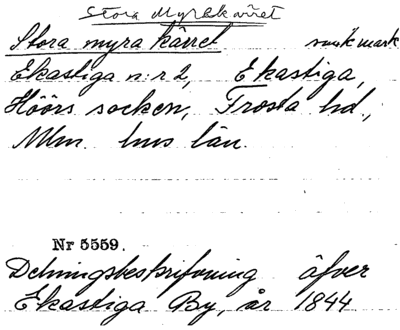 Stora Myrekärret
Stora myra kärret sank mark
Ekastiga n:r 2, Ekastiga,
Höörs socken, Frosta hd.,
Mlm. hus län.
Nr 5559.
Delningsbeskrifvning öfver
Ekastiga By, år 1844